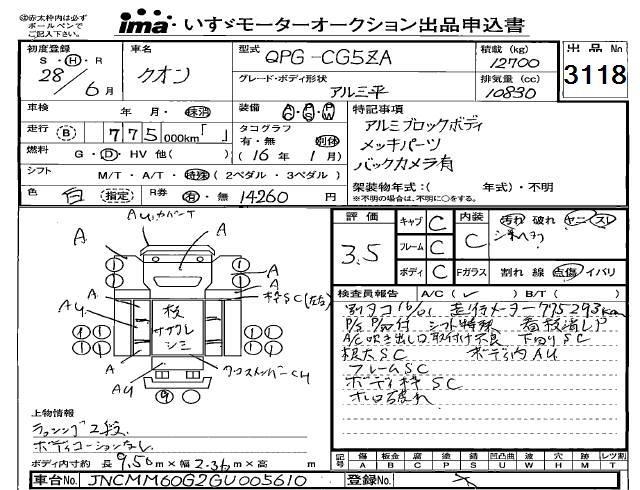 ㊟赤太枠内は必ず
ボールペンで
ご記入下さい。
ima いすゞモーターオークション出品申込書
初度登録
S・H・R
28/6月
車名
クオン
型式
QPG-CG5ZA
グレード・ボディ形状
アルミ平
積載 (kg)
12700
排気量 (cc)
10830
出品 No
3118
車検 年 月・抹消
走行 (B) 775000km「 」
燃料 G・D・HV 他( )
シフト M/T・A/T・特殊(2ペダル・3ペダル)
色 白 (指定) R券 有・無 14260円
装備 AC・PS・PW
タコグラフ
有・無 別体
(16年 1月)
特記事項
アルミブロックボディ
メッキパーツ
バックカメラ有
架装物年式:( 年式)・不明
※不明の場合は、不明に○をする。
評価
3.5
キャブ C
フレーム C
ボディ C
内装
C
Fガラス
汚れ 破れ ヤニ・スレ
割れ 線 点傷 イバリ
検査員報告 A/C(✓) B/T( )
別タコ16/01 走行メーター775293km
シフト特殊
A/C吹き出し口取付け不良 下回りSC
ボディ内AU
フレームSC
ボディ枠SC
A
A
AU
A
A
A
A
AU
AU
枠SC(左右)
板
ササクレ
シミ
クロスメンバーCU
上物情報
ラッシング2段
ボディコーションなし
ボディ内寸約 長9.56m×幅2.36m×高 m
記号
傷 A
板金 B
腐 C
塗 P
錆 S
凹凸曲 U
亀裂 W
穴 H
跡 M
ヒビ T
レツ割
車台No. JNCMM60G2GU005610
登録No.